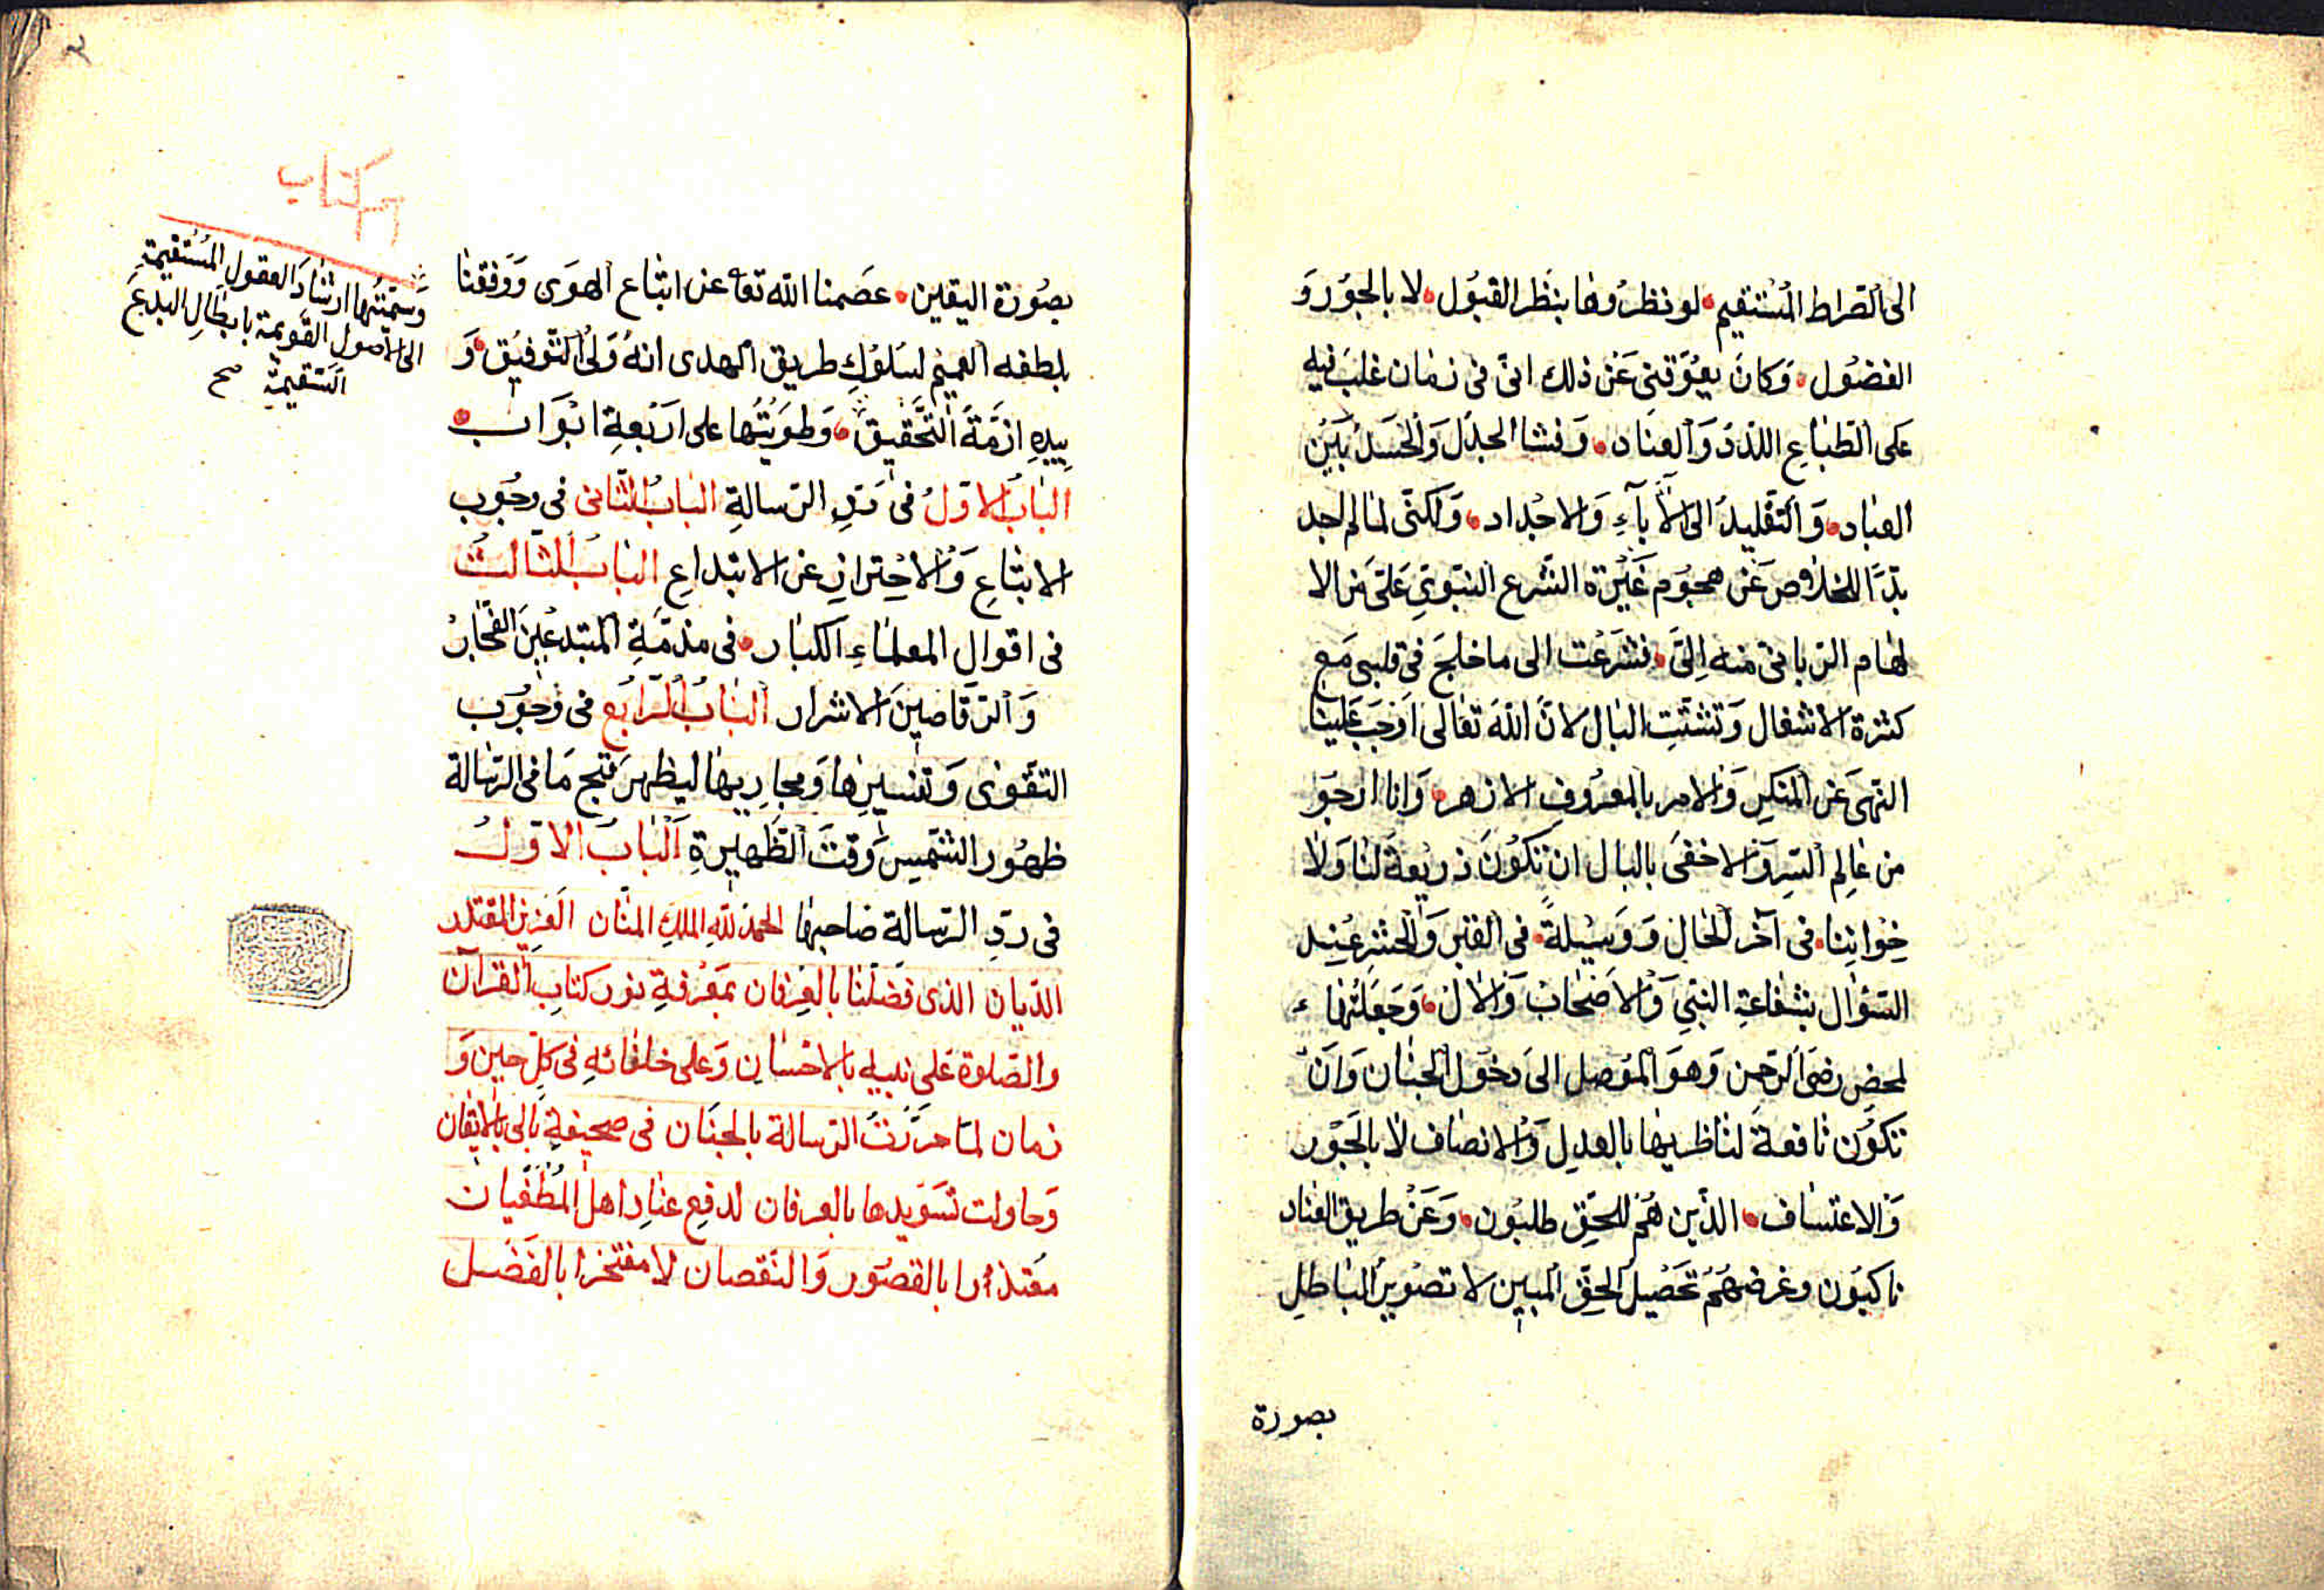 الى الصراط المستقيم لو نظروها بنظر القبول لا بالجور و
الفضول وكان يعوقنى عن ذلك انى فى زمان غلب فيه
على الطباع اللدد والعناد وفشا الجدل والحسد بين
العباد والتقليد الى الآباء والاجداد ولكنى لما لم اجد
بدا للخلاص عن هجوم غيرة الشرع النبوى على من الا
لهام الربانى منه الى فشرعت الى ما خلج فى قلبى مع
كثرة الاشغال وتشتت البال لان الله تعالى اوجب علينا
النهى عن المنكر والامر بالمعروف الازهر وانا ارجو
من عالم السر والاخفى بالبال ان تكون ذريعة لنا ولا
خواننا فى آخر الحال ووسيلة فى القبر والحشر عند
السؤال بشفاعة النبى والاصحاب والال وجعلتها
لمحض رضى الرحمن وهو الموصل الى دخول الجنان وان
تكون نافعة لناظريها بالعدل والانصاف لا بالجور
والاعتساف الذين هم للحق طلبون وعن طريق العناد
ناكبون وغرضهم تحصيل الحق المبين لا تصوير الباطل
بصورة
بصورة اليقين عصمنا الله تعا عن اتباع الهوى ووفقنا
بلطفه العميم لسلوك طريق الهدى انه ولى التوفيق و
بيده ازمة التحقيق وطويتها على اربعة ابواب
الباب الاول فى رد الرسالة الباب الثانى فى وجوب
الاتباع والاحتراز عن الابتداع الباب الثالث
فى اقوال العلماء الكبار فى مذمة المبتدعين الفجار
والرقاصين الاشرار الباب الرابع فى وجوب
التقوى وتفسيرها ومجاريها ليظهر قبح ما فى الرسالة
ظهور الشمس وقت الظهيرة الباب الاول
فى رد الرسالة صاحبها الحمد لله الملك المنان العزيز المقتدر
الديان الذى فضلنا بالعرفان بمعرفة نور كتاب القرآن
والصلوة على نبيه بالاحسان وعلى خلفائه فى كل حين و
زمان لما حررت الرسالة بالجنان فى صحيفة بالى بالايقان
وحاولت تسويدها بالعرفان لدفع عناد اهل الطغيان
معتذرا بالقصور والنقصان لا مفتخرا بالفضل
كتاب
وسميتها ارشاد العقول المستقيمة
الى الاصول القويمة بابطال البدعة
السقيمة صح